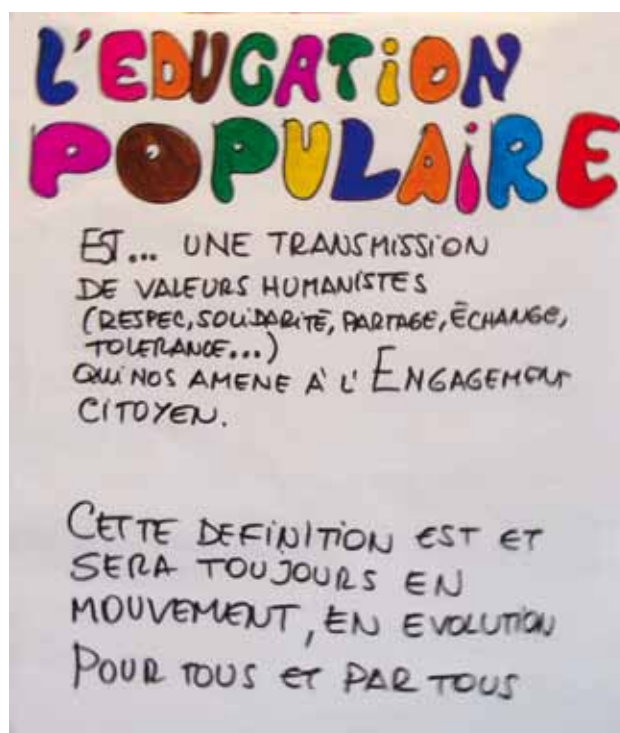 L'EDUCATiON
POPULAiRE
EST... UNE TRANSMISSiON
DE VALEURS HUMANISTES
(RESPEC, SOLIDARITÉ, PARTAGE, ÉCHANGE,
TOLERANCE...)
QUi NOS AMENE À L'ENGAGEMENT
CITOYEN.
CETTE DEFINITION EST ET
SERA TOUJOURS EN
MOUVEMENT, EN EVOLUTION
POUR TOUS ET PAR TOUS